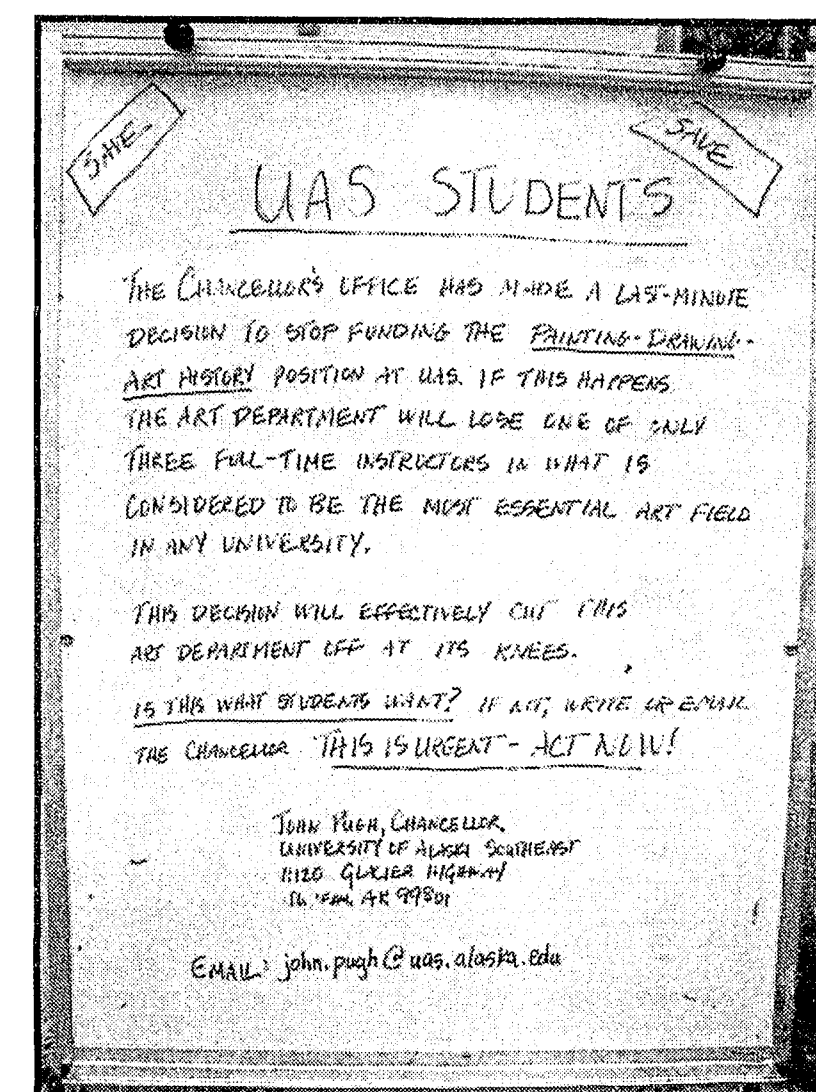 SAVE
SAVE
UAS STUDENTS
THE CHANCELLOR'S OFFICE HAS MADE A LAST-MINUTE
DECISION TO STOP FUNDING THE PAINTING-DRAWING-
ART HISTORY POSITION AT UAS. IF THIS HAPPENS
THE ART DEPARTMENT WILL LOSE ONE OF ONLY
THREE FULL-TIME INSTRUCTORS IN WHAT IS
CONSIDERED TO BE THE MOST ESSENTIAL ART FIELD
IN ANY UNIVERSITY.
THIS DECISION WILL EFFECTIVELY CUT THIS
ART DEPARTMENT OFF AT ITS KNEES.
IS THIS WHAT STUDENTS WANT? IF NOT, WRITE OR EMAIL
THE CHANCELLOR THIS IS URGENT - ACT NOW!
JOHN PUGH, CHANCELLOR.
UNIVERSITY OF ALASKA SOUTHEAST
11120 GLACIER HIGHWAY
AK 99801
EMAIL: john.pugh@uas.alaska.edu